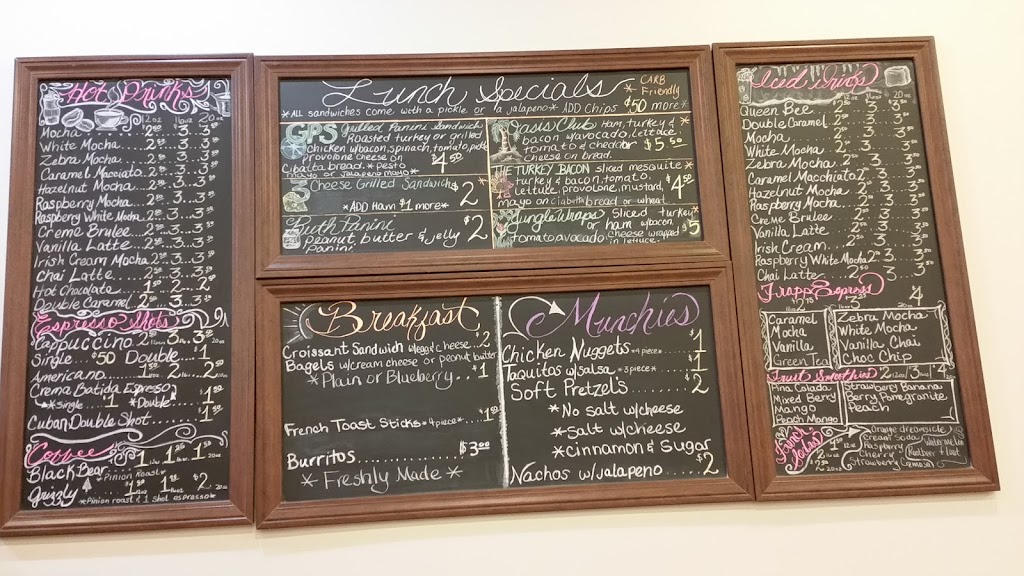 Hot Drinks
12oz 16oz 20oz
Mocha 2.50 3. 3.50
White Mocha 2.50 3. 3.50
Zebra Mocha 2.50 3. 3.50
Caramel Macciato 2.50 3. 3.50
Hazelnut Mocha 2.50 3. 3.50
Raspberry Mocha 2.50 3. 3.50
Raspberry White Mocha 2.50 3. 3.50
Creme Brulee 2.50 3. 3.50
Vanilla Latte 2.50 3. 3.50
Irish Cream Mocha 2.50 3. 3.50
Chai Latte 2.50 3. 3.50
Hot Chocolate 1.50 2. 2.50
Double Caramel 2.50 3. 3.50
Espresso Shots
Cappuccino 2.50 3. 3.50
Single $.50 Double 1
Americano 1.50 2. 2.50
Crema Batida Espreso
*single 1 *Double 1.50
Cuban Double Shot 1.50
Coffee
Black Bear *Pinion Roast* 1. 1.50
Grizzly 1.50 $2
*Pinion roast & 1 shot espresso*
Lunch Specials
CARB Friendly
*All sandwiches come with a pickle or a jalapeno* ADD Chips $.50 more*
GPS Grilled Panini Sandwich
Roasted turkey or grilled
chicken w/bacon, spinach, tomato,
provolone cheese on
bread. * pesto
mayo or Jalapeno mayo* $4.50
Cheese Grilled Sandwich $2
*ADD Ham $1 more*
Ruth Panini $2
Peanut, butter & jelly
Panini
Oasis Club Ham, turkey &
bacon w/avocado, lettuce
tomato & cheddar $5.50
cheese on bread.
THE TURKEY BACON Sliced mesquite
turkey & bacon, tomato,
lettuce, provolone, mustard, $4.50
mayo on ciabatta bread or wheat
Jungle Wraps Sliced turkey
or ham w/bacon $5
tomato avocado cheese wrapped
in lettuce.
Breakfast
Croissant Sandwich w/egg & cheese 2
Bagels w/cream cheese or peanut butter
*Plain or Blueberry 1
French Toast Sticks *4 piece* 1.50
Burritos $3.00
* Freshly Made *
Munchies
Chicken Nuggets *4 piece* $1
Taquitos w/salsa *3 piece* $1
Soft Pretzel's $2
*No salt w/cheese
*salt w/cheese
*cinnamon & Sugar
Nachos w/jalapeno $2
Iced Drinks
12oz 16oz 20oz
Queen Bee 2.50 3. 3.50
Double Caramel 2.50 3. 3.50
Mocha 2.50 3. 3.50
White Mocha 2.50 3. 3.50
Zebra Mocha 2.50 3. 3.50
Caramel Macchiato 2.50 3. 3.50
Hazelnut Mocha 2.50 3. 3.50
Raspberry Mocha 2.50 3. 3.50
Creme Brulee 2.50 3. 3.50
Vanilla Latte 2.50 3. 3.50
Irish Cream 2.50 3. 3.50
Raspberry White Mocha 2.50 3. 3.50
Chai Latte 2.50 3. 3.50
Frapp Espresso 4
Caramel
Mocha
Vanilla
Green Tea
Zebra Mocha
White Mocha
Vanilla Chai
Choc Chip
Fruit Smoothies 2 3 4
Pina Colada
Mixed Berry
Mango
Peach Mango
Strawberry Banana
Berry Pomegranite
Peach
Italian Sodas
Orange dreamsicle
Cream Soda
Raspberry
Cherry
Strawberry
Watermelon
Rootbeer Float